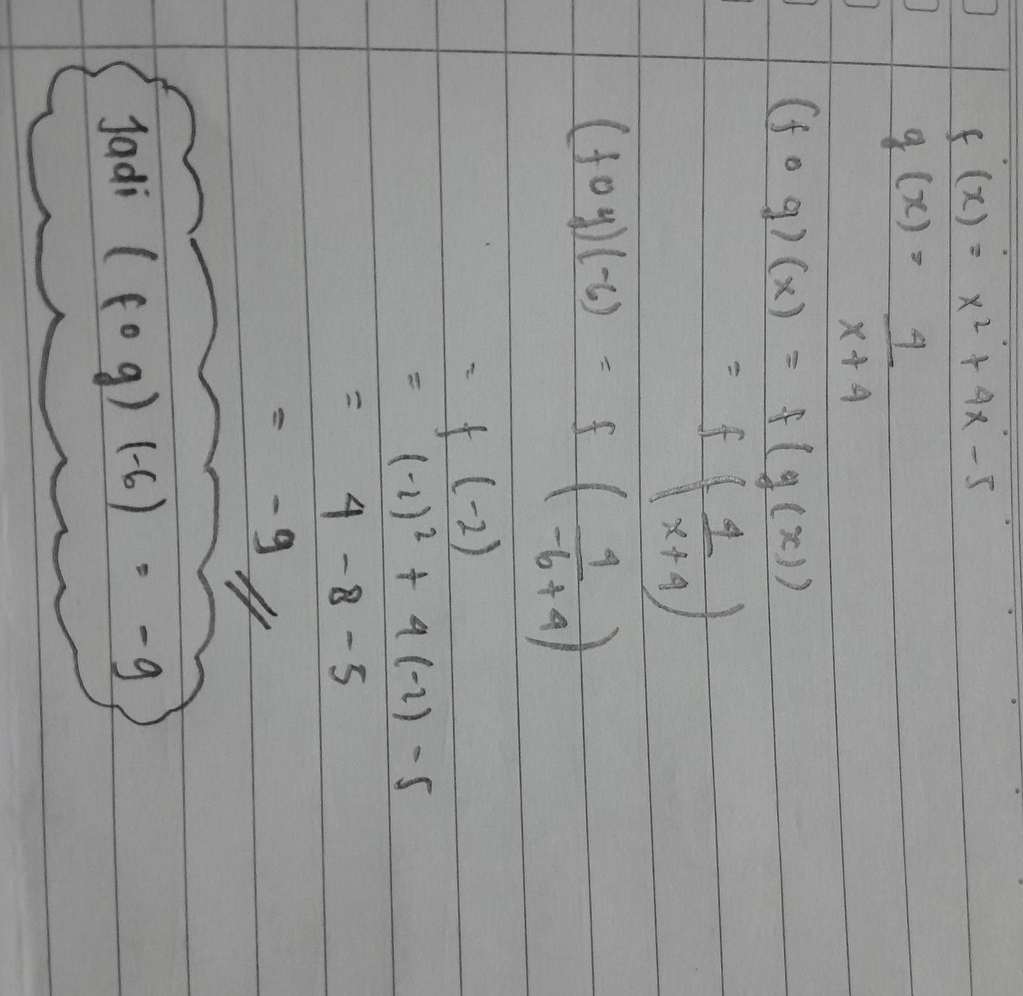 f(x) = x² + 4x - 5
g(x) = 4
x+4
(f o g)(x) = f(g(x))
= f (4/x+4)
(f o g)(-6) = f (4/-6+4)
= f (-2)
= (-2)² + 4(-2) - 5
= 4 - 8 - 5
= -9 //
Jadi (f o g) (-6) = -9